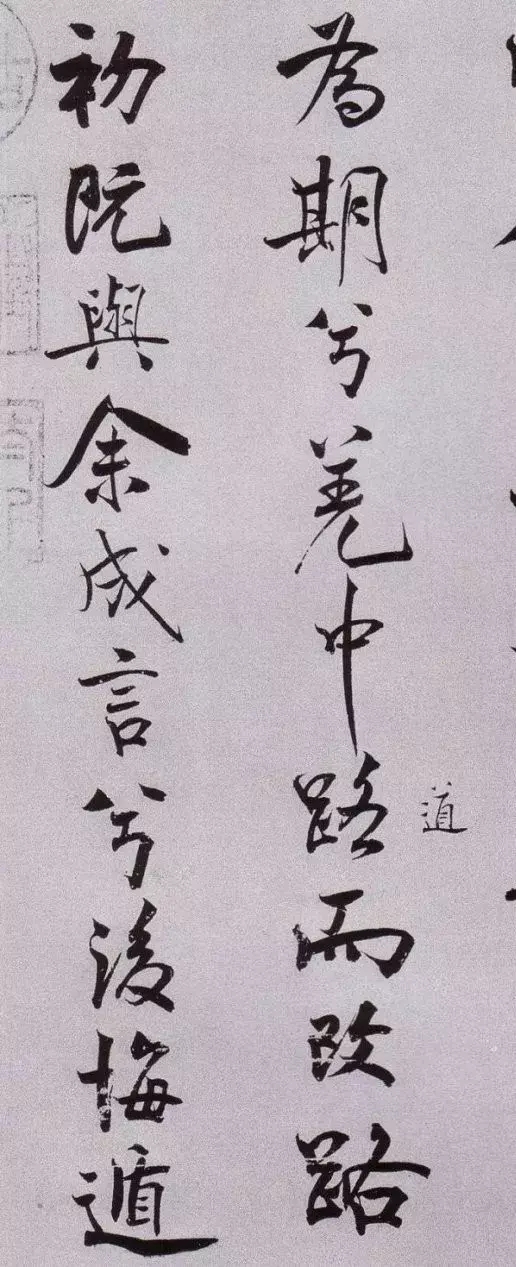 為期兮羌中路而改路
道
初既與余成言兮後悔遁